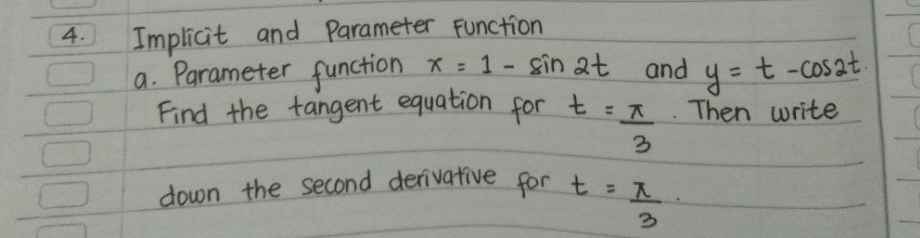 4. Implicit and Parameter Function
a. Parameter function x = 1 - sin 2t and y = t - cos 2t.
Find the tangent equation for t = π/3. Then write
down the second derivative for t = π/3.